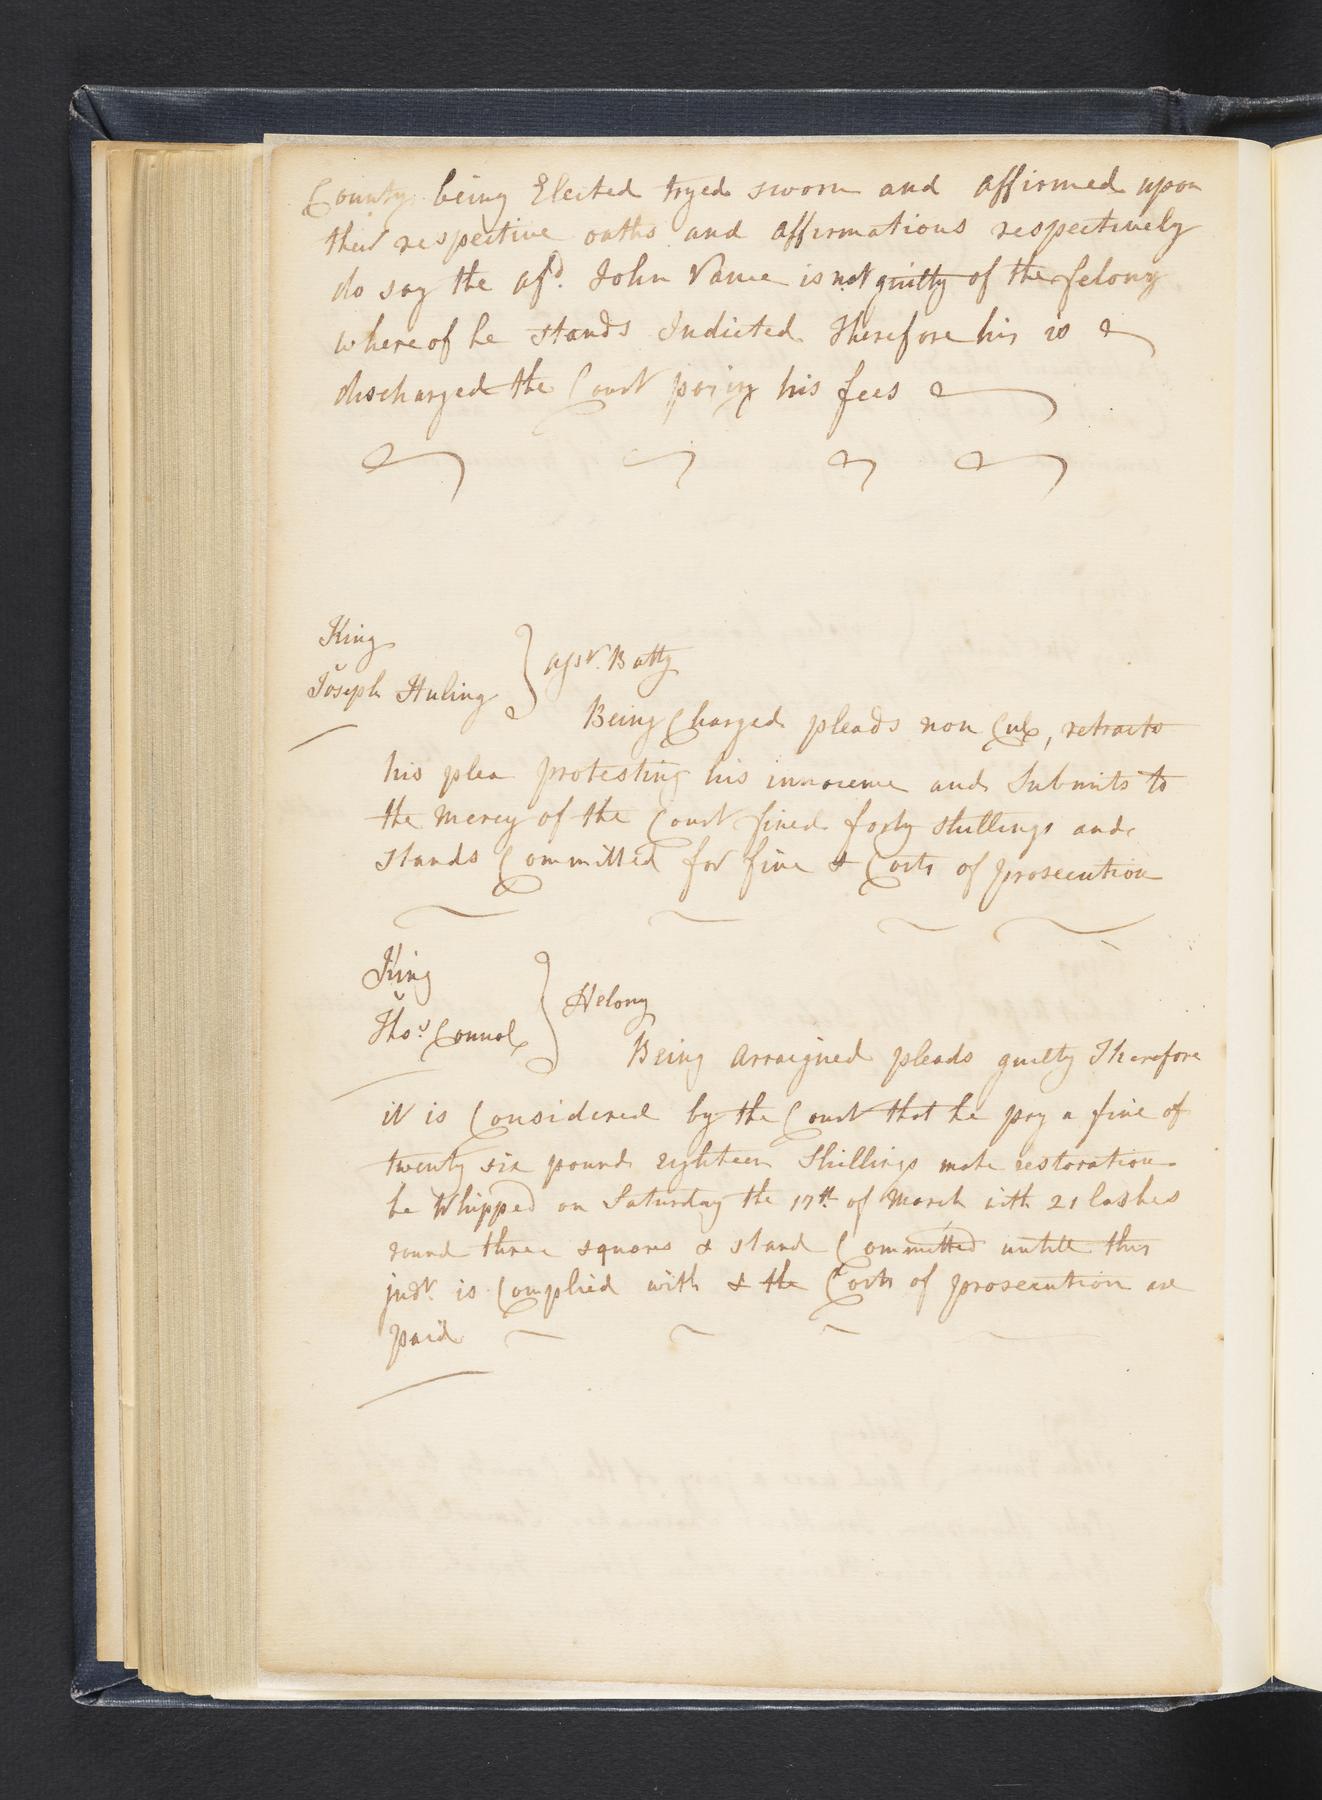 County being Elected tryed sworn and affirmed upon
their respective oaths and affirmations respectively
do say the afd. John Vance is not guilty of the felony
whereof he stands Indicted Therefore his is
discharged the Court paing his fees
King
v
Joseph Huling
asst. & Batty
Being Charged pleads non Cul, retracts
his plea protesting his innocence and Submits to
the mercy of the Court fined forty shillings and
stands Committed for fine & Costs of prosecution
King
v
Thos. Connol
Felony
Being arraigned pleads guilty Therefore
it is Considered by the Court that he pay a fine of
twenty six pound eighteen Shillings make restoration
be Whipped on Saturday the 17th of March with 21 lashes
round three squares & stand Committed untill this
judt. is Complied with & the Costs of prosecution are
paid